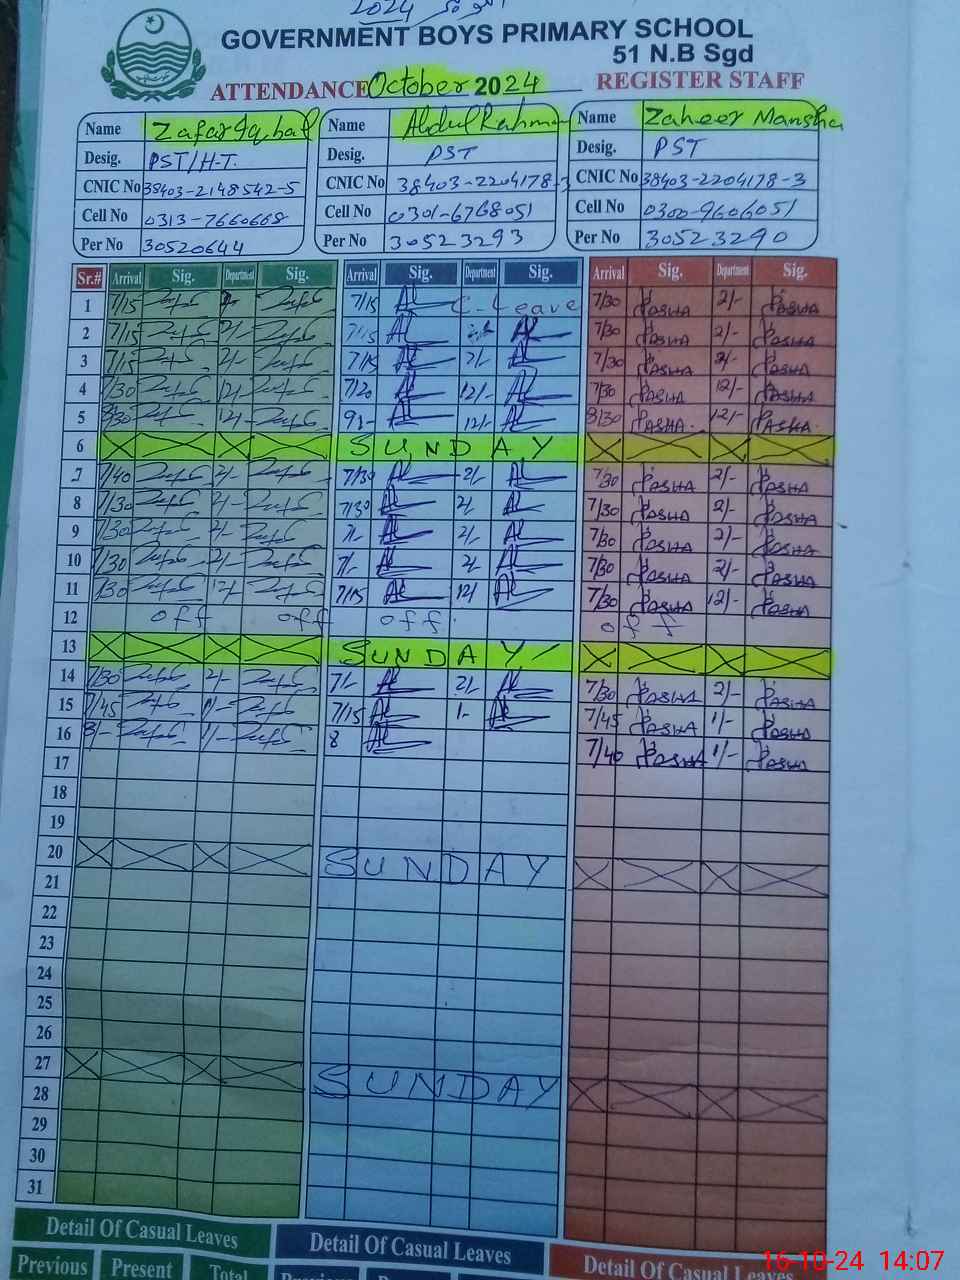 2024
GOVERNMENT BOYS PRIMARY SCHOOL
51 N.B Sgd
ATTENDANCE October 2024 REGISTER STAFF
Name Zafar Iqbal Name Abdul Rahman Name Zaheer Mansha
Desig. PST/H-T. Desig. PST Desig. PST
CNIC No 38403-2148542-5 CNIC No 38403-2204178-3 CNIC No 38403-2204178-3
Cell No 0313-7660668 Cell No 0301-6768051 Cell No 0300-9606051
Per No 30520644 Per No 30523293 Per No 30523290
Sr.# Arrival Sig. Department Sig. Arrival Sig. Department Sig. Arrival Sig. Department Sig.
1 7/15 7/15 C-Leave 7/30 PASHA 2/- PASHA
2 7/15 2/- 7/15 7/30 PASHA 2/- PASHA
3 7/15 2/- 7/15 2/- 7/30 PASHA 2/- PASHA
4 7/30 12/- 7/20 12/- 7/30 PASHA 12/- PASHA
5 8/30 12/- 9/- 12/- 8/30 PASHA 12/- PASHA
6 SUNDAY
7 7/40 2/- 7/30 2/- 7/30 PASHA 2/- PASHA
8 7/30 2/- 7/30 2/- 7/30 PASHA 2/- PASHA
9 7/30 2/- 7/- 2/- 7/30 PASHA 2/- PASHA
10 7/30 2/- 7/- 2/- 7/30 PASHA 2/- PASHA
11 7/30 12/- 7/15 12/- 7/30 PASHA 12/- PASHA
12 off off off off
13 SUNDAY
14 7/30 2/- 7/- 2/- 7/30 PASHA 2/- PASHA
15 7/45 1/- 7/15 1- 7/45 PASHA 1/- PASHA
16 8/- 1/- 8 7/40 PASHA 1/- PASHA
17
18
19
20 SUNDAY
21
22
23
24
25
26
27 SUNDAY
28
29
30
31
Detail Of Casual Leaves Detail Of Casual Leaves Detail Of Casual Leaves
Previous Present Total
16-10-24 14:07